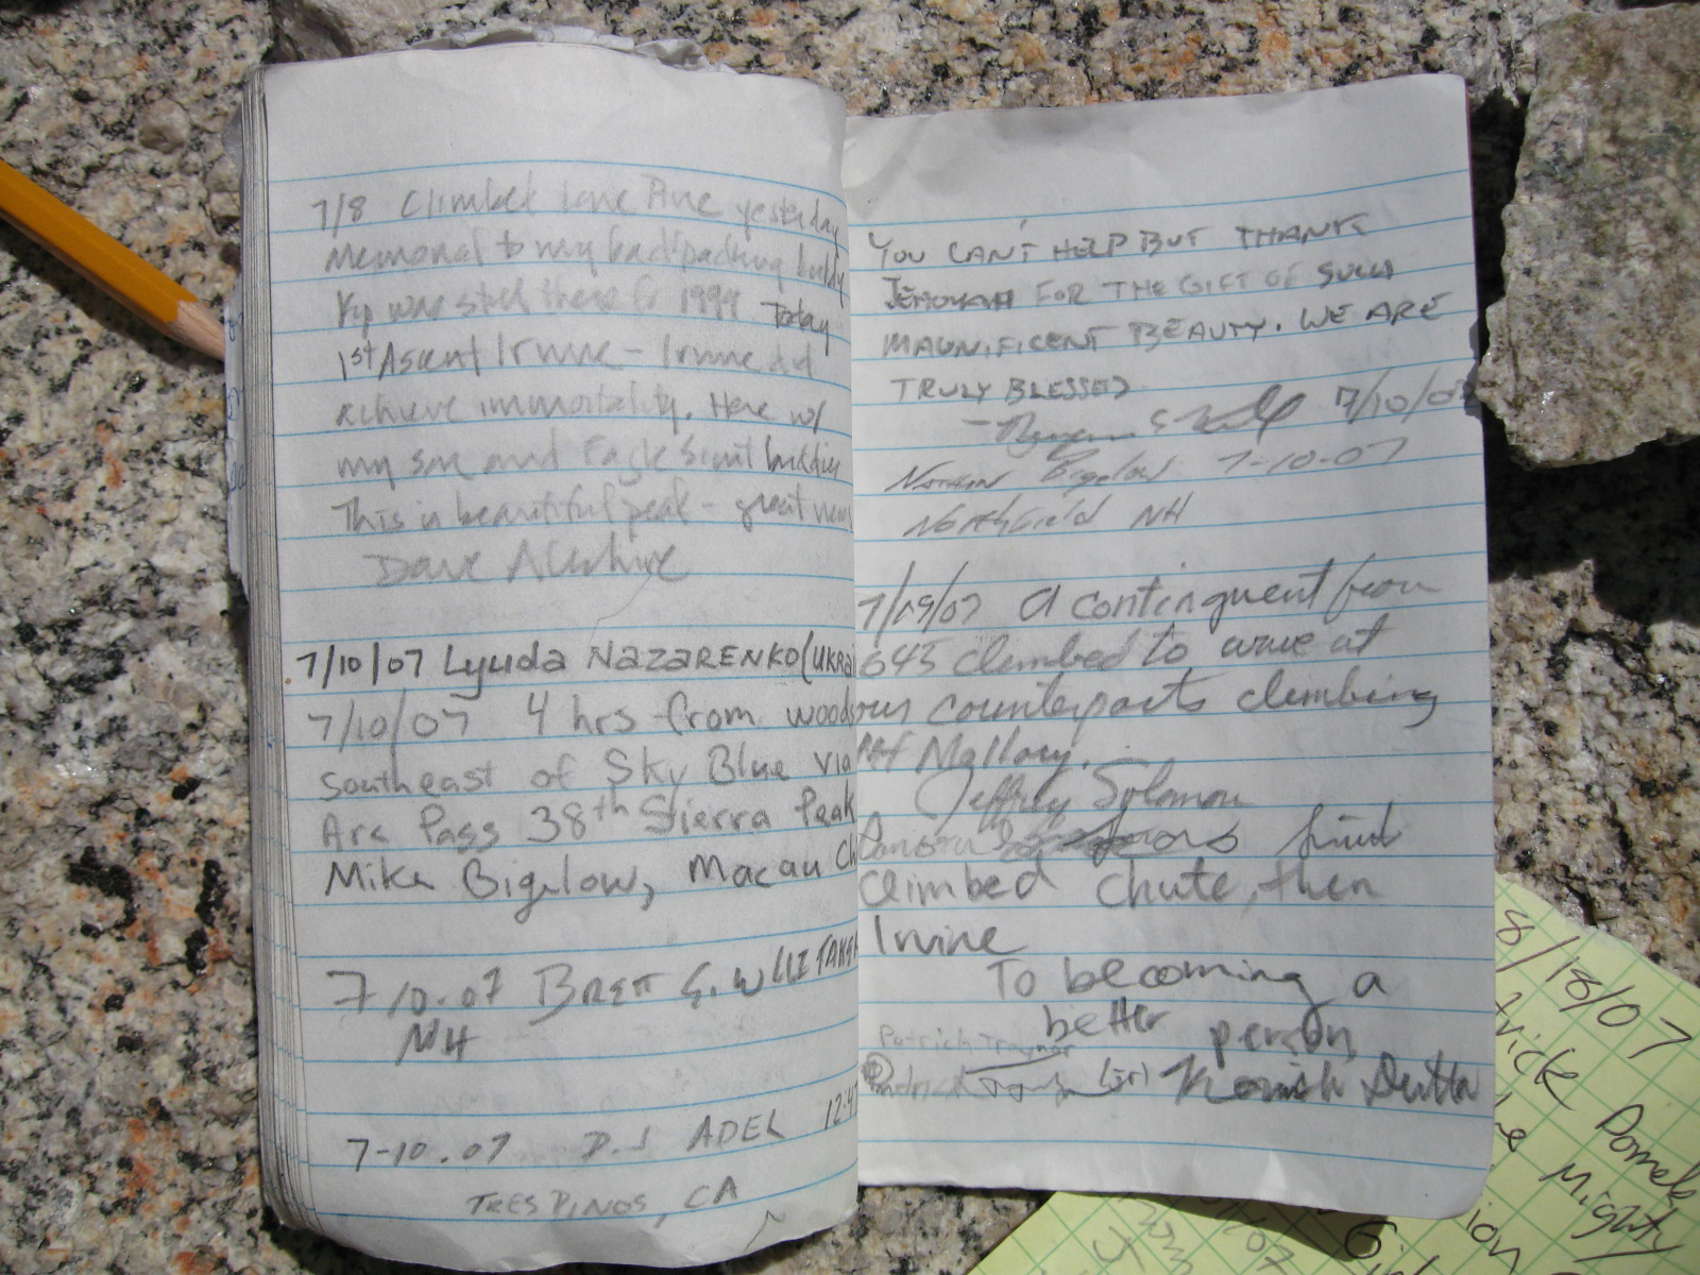 7/8 Climbed Lone Pine yesterday
Memorial to my backpacking buddy
Kip was still there fr 1999 Today
1st Ascent Irvine - Irvine did
achieve immortality. Here w/
my son and Eagle Scout buddies
This is beautiful peak - great views
Dave
7/10/07 Lyuda NAZARENKO (UKRA
7/10/07 4 hrs from woods
southeast of Sky Blue via
Arc Pass 38th Sierra Peak
Mike Bigelow, Macau Ch
7-10-07 BRETT G. WHITAKER
NH
7-10-07 D.J ADEL 12:4
TRES PINOS, CA
YOU CAN'T HELP BUT THANK
JEHOVAH FOR THE GIFT OF SUCH
MAGNIFICENT BEAUTY. WE ARE
TRULY BLESSED
7/10/07
Nathan Bigelow 7-10-07
Northfield NH
7/19/07 A continguent from
645 climbed to wave at
our counterparts climbing
Mt Mallory.
Jeffrey Solomon
climbed chute, then
Irvine
To becoming a
better person,
Patrick Traynor
Patrick Traynor (Jr) Dutta
8/18/07
trick Domek
he Mighty
ion
Gi